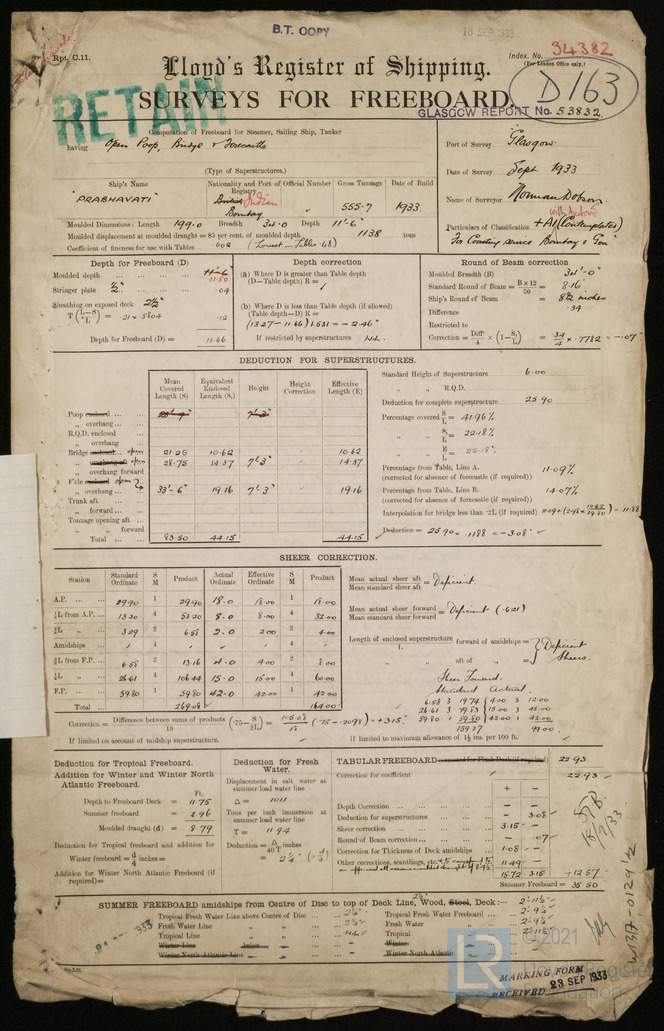 B.T. COPY
18 SEP. 1933
Rpt. C.11.
Index. No. 34382
(For London Office only.)
Lloyd's Register of Shipping.
D163
RETAIN
SURVEYS FOR FREEBOARD.
GLASGOW REPORT No. 53832.
Computation of Freeboard for Steamer, Sailing Ship, Tanker
having Open Poop, Bridge & Forecastle
(Type of Superstructures.)
Port of Survey Glasgow
Date of Survey Sept 1933
Name of Surveyor Norman Dobson
Particulars of Classification +A1 (Contemplated)
For Coasting Service Bombay & Goa
Ship's Name
Nationality and Port of Registry
Official Number
Gross Tonnage
Date of Build
"PRABHAVATI"
British Indian
Bombay
555.7
1933
Moulded Dimensions: Length 199.0 Breadth 34.0 Depth 11'-6"
Moulded displacement at moulded draught = 85 per cent. of moulded depth 1138 tons
Coefficient of fineness for use with Tables .602 (Lowest in Tables .68)
Depth for Freeboard (D)
Moulded depth ... 11-6 11.50
Stringer plate ... .04
Sheathing on exposed deck 2½"
T (L-S/L) = .21 x .5804 .12
Depth for Freeboard (D) = 11.66
Depth correction
(a) Where D is greater than Table depth
(D-Table depth) R =
(b) Where D is less than Table depth (if allowed)
(Table depth-D) R =
(13.27 - 11.66) 1.531 = -2.46"
If restricted by superstructures Nil.
Round of Beam correction
Moulded Breadth (B) 34'-0"
Standard Round of Beam = B×12/50 = 8.16"
Ship's Round of Beam = 8½ inches
Difference .34
Restricted to
Correction = Diff/4 × (1-S₁/L) = .34/4 x .7782 = -.07"
DEDUCTION FOR SUPERSTRUCTURES.
Mean Covered Length (S)
Equivalent Enclosed Length (S₁)
Height
Height Correction
Effective Length (E)
Poop enclosed ... 7'-3"
„ overhang ...
R.Q.D. enclosed
„ overhang
Bridge enclosed... open 21.25 10.62 10.62
„ overhang aft open 28.75 14.37 7'-3" 14.37
„ overhang forward
F'cle enclosed open
„ overhang ... 33'-6" 19.16 7'-3" 19.16
Trunk aft ...
„ forward ...
Tonnage opening aft ...
„ „ forward
Total ... 83.50 44.15 44.15
Standard Height of Superstructure 6.00
„ „ R.Q.D.
Deduction for complete superstructure 25.90
Percentage covered S/L = 41.96%
„ „ S₁/L = 22.18%
„ „ E/L = 22.18%
Percentage from Table, Line A. 11.09%
(corrected for absence of forecastle (if required))
Percentage from Table, Line B. 14.07%
(corrected for absence of forecastle (if required))
Interpolation for bridge less than ·2L (if required) 11.09 + (2.98 x 10.62/39.80) = 11.88
Deduction = 25.90 x .1188 = -3.08"
SHEER CORRECTION.
Station
Standard Ordinate
S M
Product
Actual Ordinate
Effective Ordinate
S M
Product
A.P. ... 29.90 1 29.90 18.0 18.00 1 18.00
⅙L from A.P. ... 13.30 4 53.20 8.0 8.00 4 32.00
⅓L „ ... 3.29 2 6.58 2.0 2.00 2 4.00
Amidships ... 4 4
⅓L from F.P. ... 6.58 2 13.16 4.0 4.00 2 8.00
⅙L „ ... 26.61 4 106.44 15.0 15.00 4 60.00
F.P. ... 59.80 1 59.80 42.0 42.00 1 42.00
Total ... 269.08 164.00
Mean actual sheer aft / Mean standard sheer aft = Deficient.
Mean actual sheer forward / Mean standard sheer forward = Deficient (.621)
Length of enclosed superstructure / L forward of amidships =
„ „ aft of „ =
Deficient Sheers.
Sheer Forward.
Standard Actual.
6.58 3 19.74 4.00 3 12.00
26.61 3 79.83 15.00 3 45.00
59.80 1 59.80 42.00 1 42.00
159.37 99.00
Correction = Difference between sums of products / 18 (·75 - S/2L) = 105.08/18 (.75 - .2098) = +3.15"
If limited on account of midship superstructure.
If limited to maximum allowance of 1½ ins. per 100 ft.
Deduction for Tropical Freeboard.
Addition for Winter and Winter North Atlantic Freeboard.
Ft.
Depth to Freeboard Deck = 11.75
Summer freeboard = 2.96
Moulded draught (d) = 8.79
Deduction for Tropical freeboard and addition for
Winter freeboard = d/4 inches =
Addition for Winter North Atlantic Freeboard (if required)=
Deduction for Fresh Water.
Displacement in salt water at summer load water line
Δ = 1011
Tons per inch immersion at summer load water line
T = 11.94
Deduction = Δ/40T inches
= 2¼"
TABULAR FREEBOARD corrected for Flush Deck (if required) 22.93
Correction for coefficient 22.93
+ -
Depth Correction ... - -
Deduction for superstructures ... - 3.08
Sheer correction ... 3.15 -
Round of Beam correction ... - .07
Correction for Thickness of Deck amidships ... 1.08 -
Other corrections, scantlings, etc. 11.49 -
15.72 3.15 +12.57
Summer Freeboard = 35.50
18/9/33
SUMMER FREEBOARD amidships from Centre of Disc to top of Deck Line, Wood, Steel, Deck:— 2'-11½"
Tropical Fresh Water Line above Centre of Disc ... 2¼"
Fresh Water Line „ „ ... 2¼"
Tropical Line „ „ ... Nil
Winter Line below „
Winter North Atlantic Line „ „
Tropical Fresh Water Freeboard ... 2'-9¼"
Fresh Water „ ... 2'-9¼"
Tropical „ ... 2'-11½"
Winter „
Winter North Atlantic „
1933
W137-0129 1/2
© 2021
LR
Lloyd's Register
Foundation
MARKING FORM
RECEIVED 23 SEP 1933